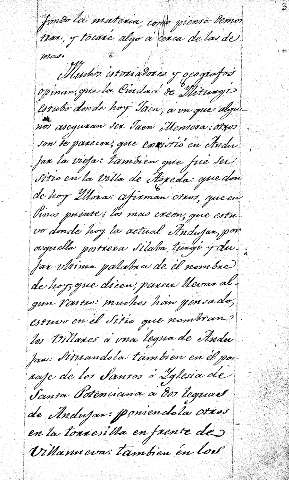 fondo la materia, como pienso demos
trar, y tocaré algo a cerca de las de
mas.
Muchos historiadores y geografos
opinan, que la Ciudad de Illiturgi
estubo donde hoy Jaen, a un que algu
nos aseguran ser Jaen Mentesa: otros
son de parecer, que existió en Andu
jar la vieja: tambien que fué su
sitio en la villa de
de hoy Yllora: afirman otros, que en
los mas creen, que estu
vo donde hoy la actual Andujar, por
aquella postrera silaba turgi y du
jar ultima palabra de él nombre
de hoy, que dicen, parece llevar al
gun rastro: muchos hán pensado,
estuvo en él Sitio que nombran
los Villares a una legua de Andu
jar: Situandola tambien en él pa
raje de los Santos ó Yglesia de
Santa Potenciana a dos leguas
de Andujar: poniendola otros
en la torresilla en frente de
Villanueva: tambien en los